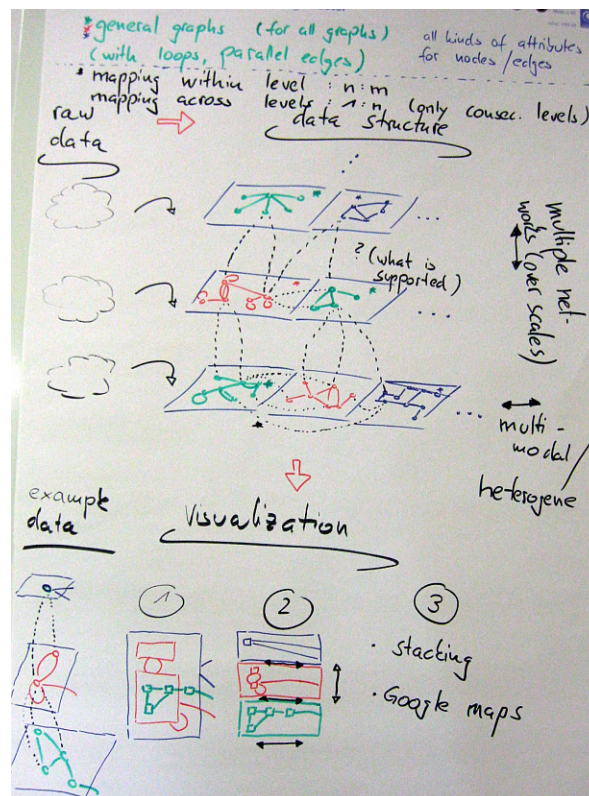 * general graphs (for all graphs)
(with loops, parallel edges)
all kinds of attributes
for nodes/edges
* mapping within level : n:m
mapping across levels : 1:n (only consec. levels)
raw
data
data structure
...
*
*
...
? (what is
supported)
*
*
...
*
*
...
multiple net-
works (over scales)
multi-
modal
heterogene
example
data
Visualization
1
2
3
· stacking
· Google maps